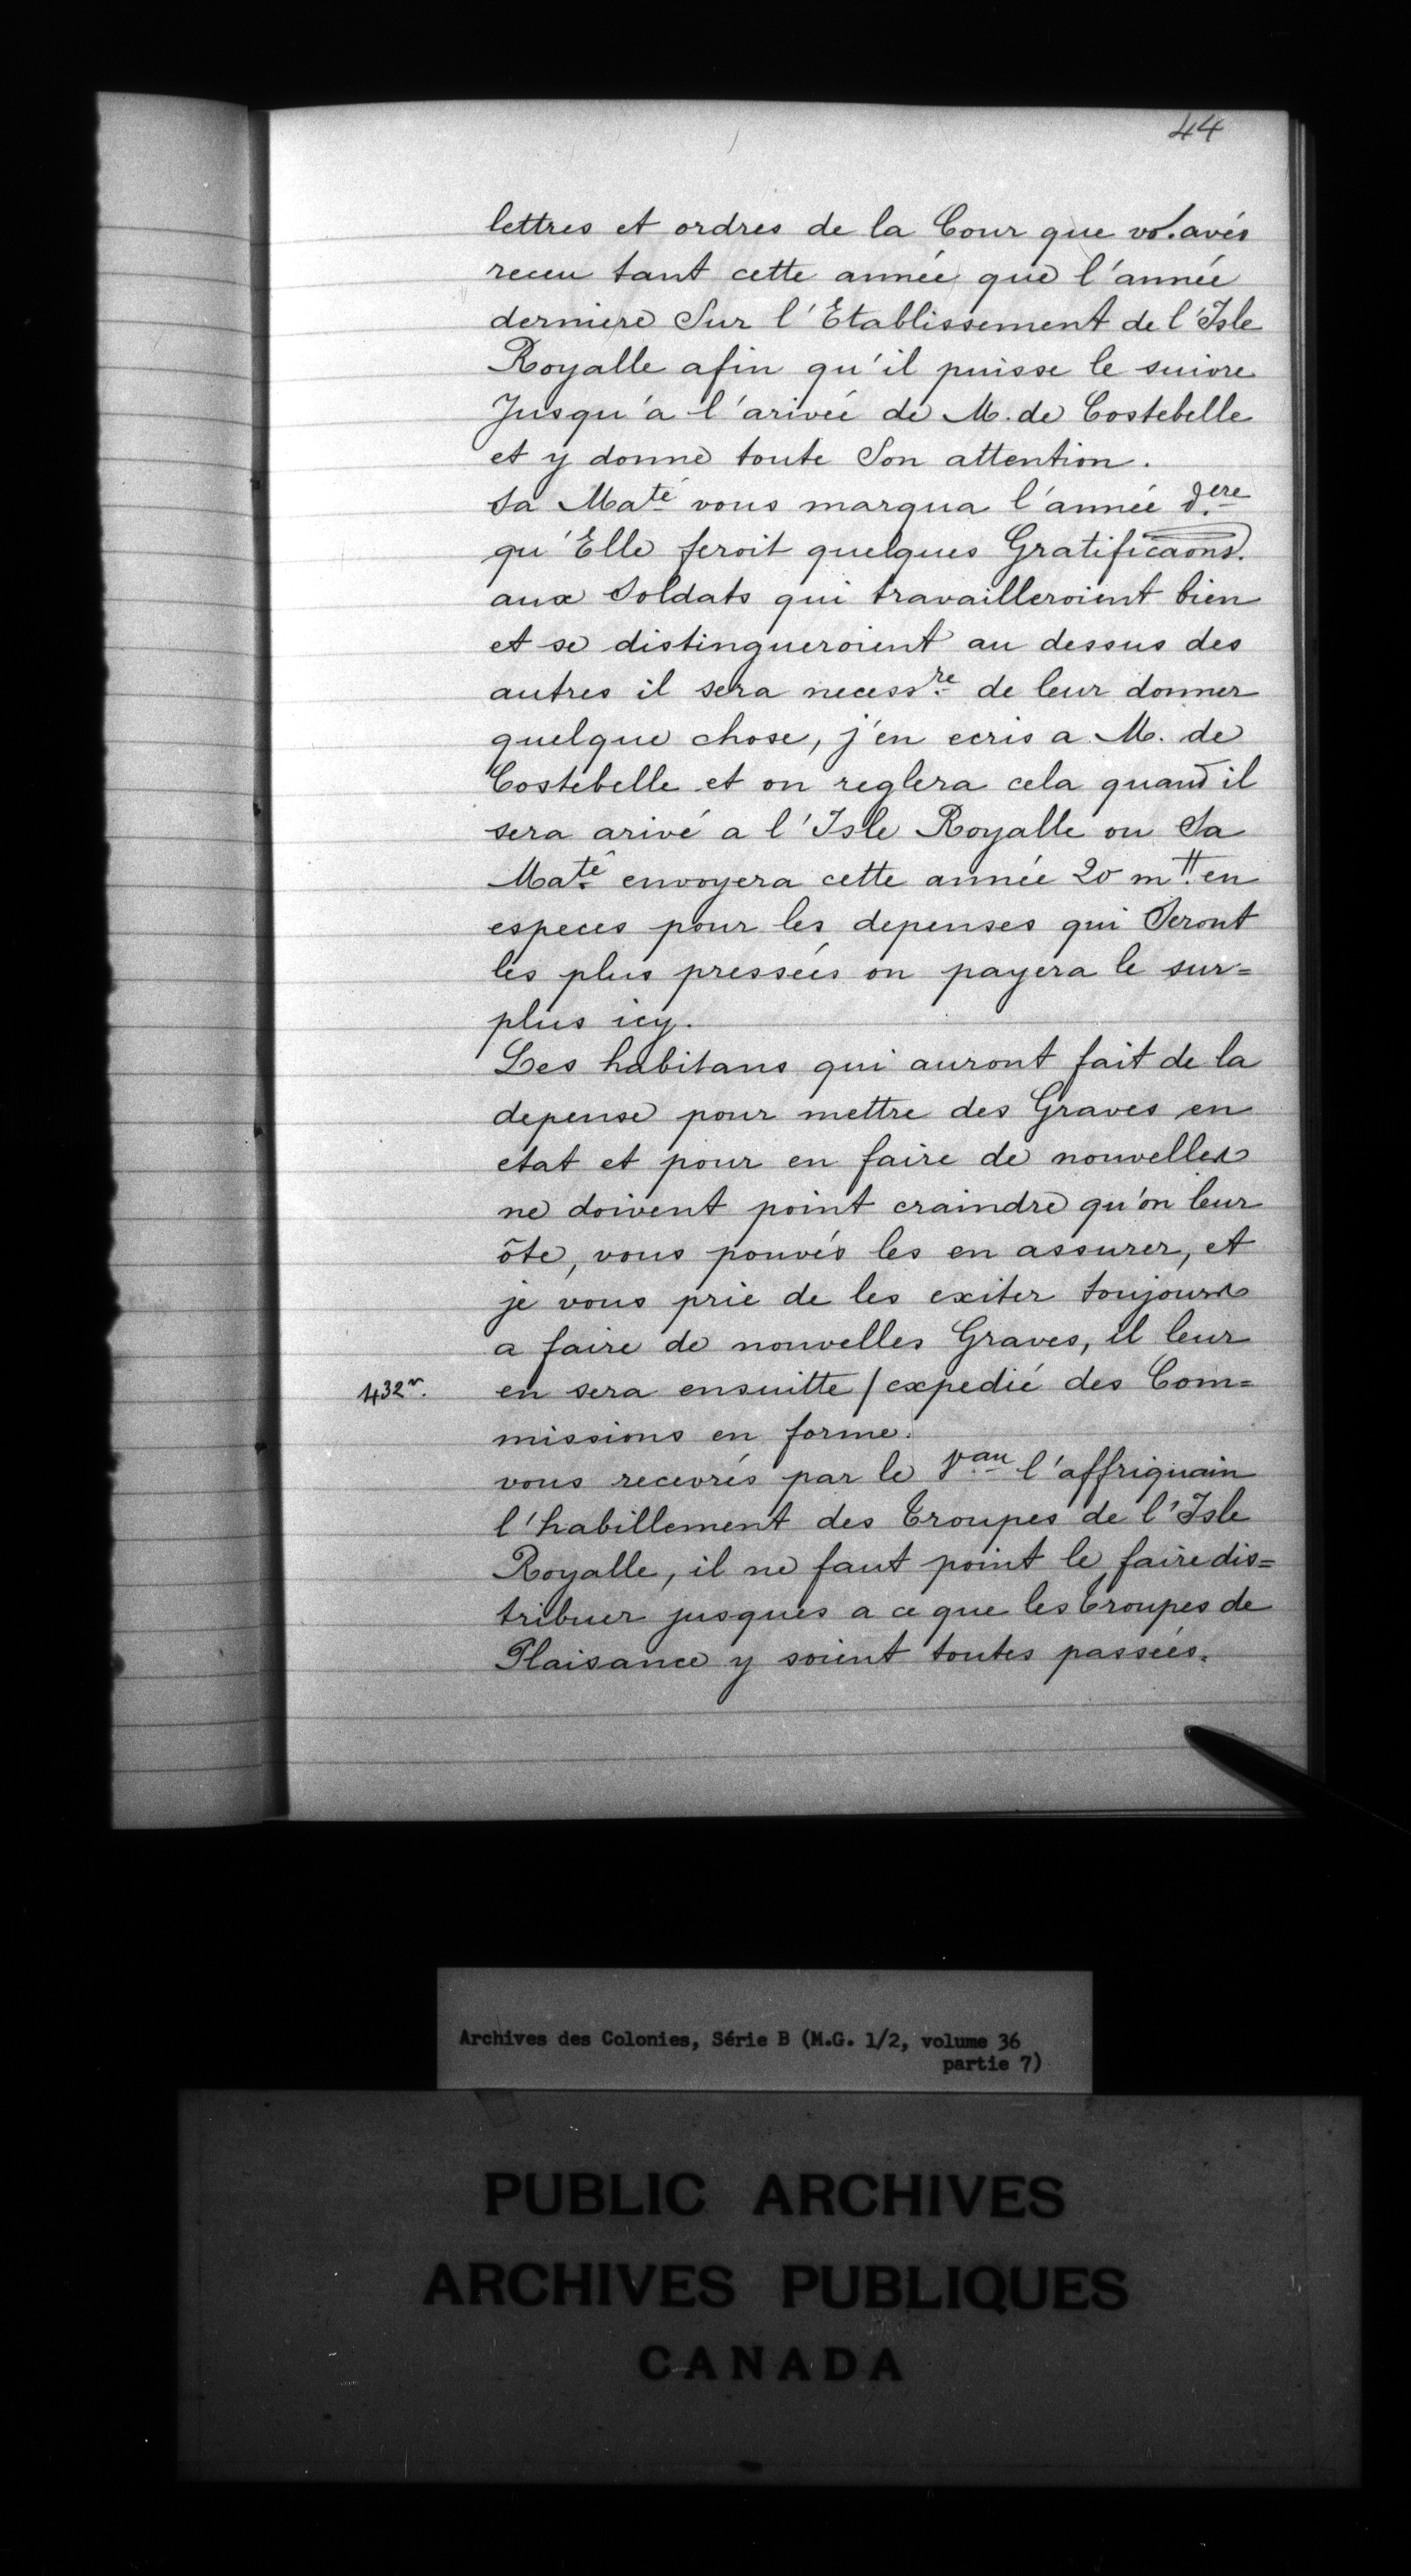 44
lettres et ordres de la Cour que vs. avés
receu tant cette année que l'année
derniere Sur l'Etablissement de l'Isle
Royalle afin qu'il puisse le suivre
Jusqu'a l'arivée de M. de Costebelle
et y donne toute Son attention.
Sa Maté vous marqua l'année d.ere
qu'Elle feroit quelques Gratificaons.
aux Soldats qui travailleroient bien
et se distingueroient au dessus des
autres il sera necessre de leur donner
quelque chose, j'en ecris a M. de
Costebelle et on reglera cela quand il
sera arivé a l'Isle Royalle ou Sa
Maté envoyera cette année 20 m tt. en
especes pour les depenses qui Seront
les plus pressées on payera le sur=
plus icy.
Les habitans qui auront fait de la
depense pour mettre des Graves en
etat et pour en faire de nouvelles
ne doivent point craindre qu'on leur
ôte, vous pouvés les en assurer, et
je vous prie de les exiter toujours
a faire de nouvelles Graves, il leur
432 v. en sera ensuitte / expedié des Com=
missions en forme.
vous recevrés par le V.au l'affriquain
l'habillement des Troupes de l'Isle
Royalle, il ne faut point le faire dis=
tribuer jusques a ce que les Troupes de
Plaisance y soient toutes passées.
Archives des Colonies, Série B (M.G. 1/2, volume 36
partie 7)
PUBLIC ARCHIVES
ARCHIVES PUBLIQUES
CANADA